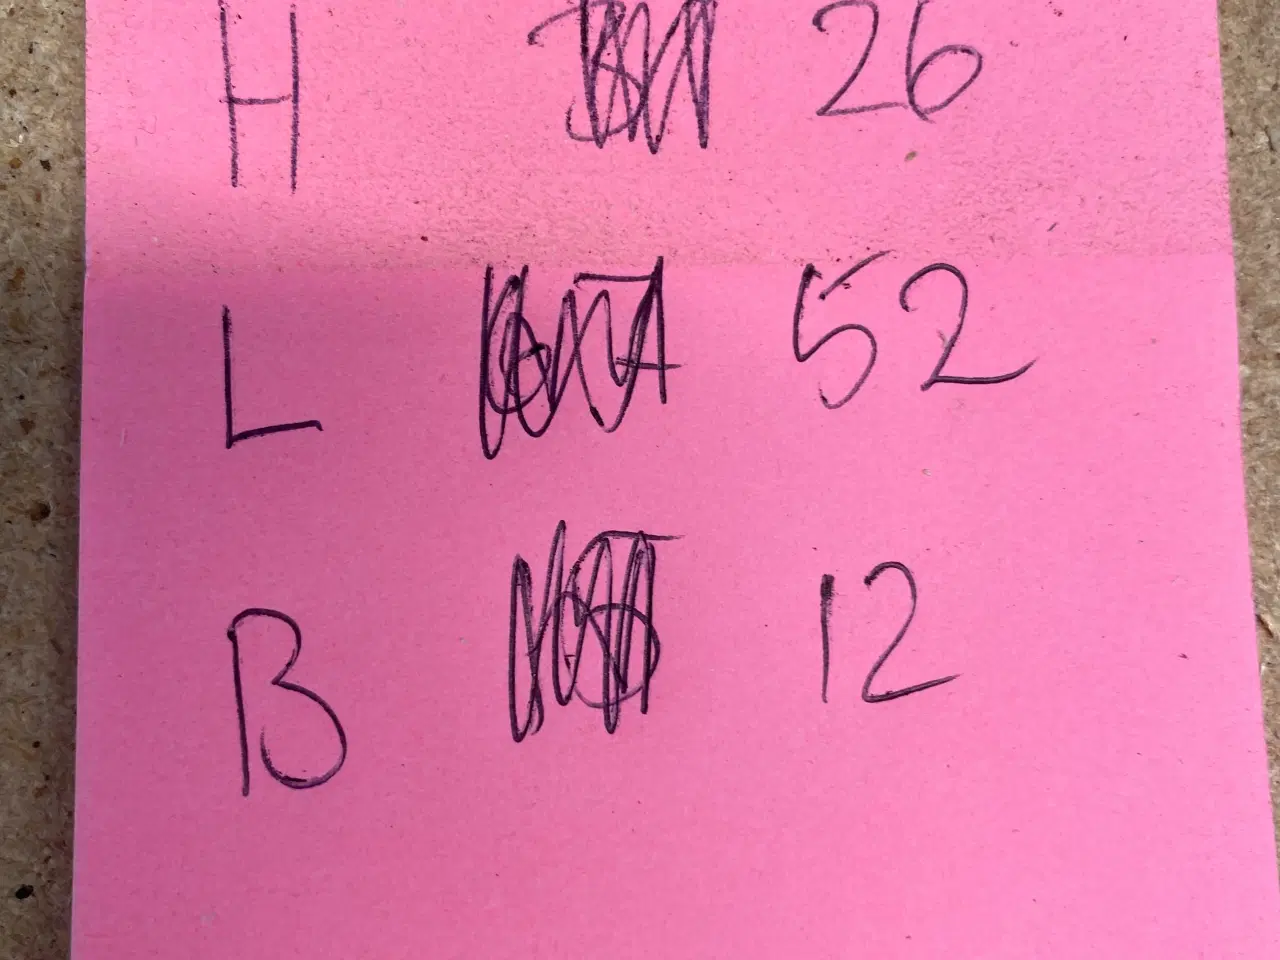 H 26
L 52
B 12